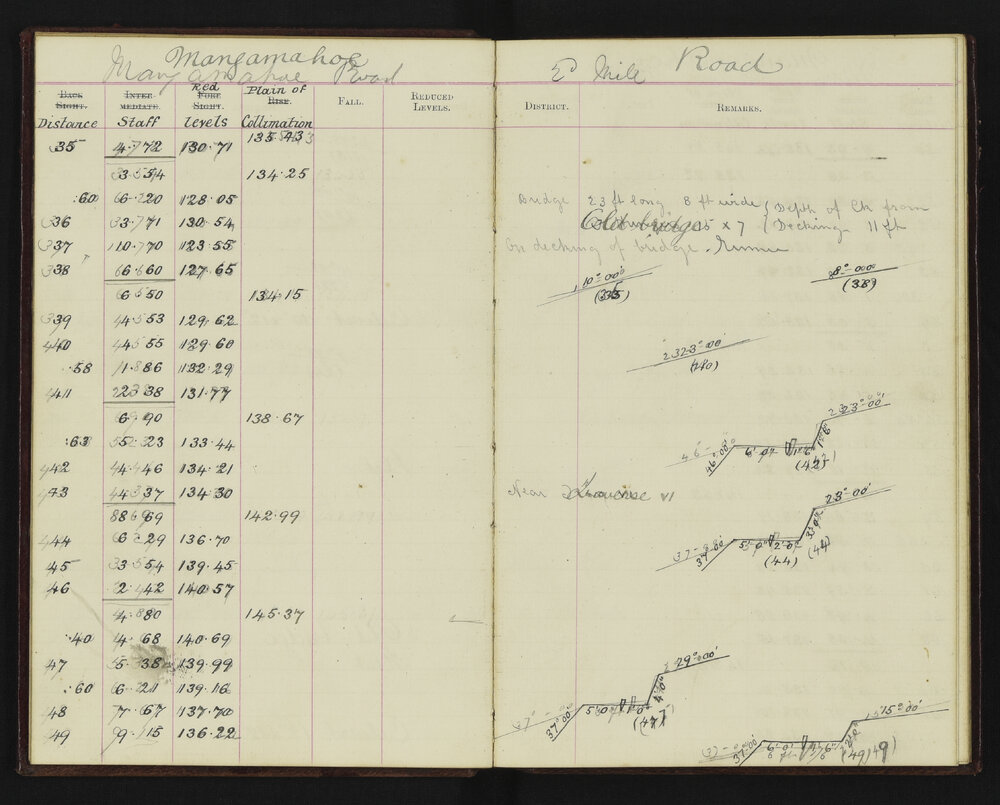 Mangamahoe
Mangamahoe Road
Back Sight. Inter- mediate. Fore Sight. Rise. Fall. Reduced Levels.
Distance Staff Red levels Plain of Collimation
35 4.72 130.71 135.43
3.54 134.25
.60 6.20 128.05
36 3.71 130.54
37 10.70 123.55
38 6.60 127.65
6.50 134.15
39 4.53 129.62
40 4.55 129.60
.58 1.86 132.29
41 2.38 131.77
6.90 138.67
.63 5.23 133.44
42 4.46 134.21
43 4.37 134.30
8.69 142.99
44 6.29 136.70
45 3.54 139.45
46 2.42 140.57
4.80 145.37
.40 4.68 140.69
47 5.38 139.99
.60 6.21 139.16
48 7.67 137.70
49 9.15 136.22
Mile Road
District. Remarks.
Bridge 23 ft long 8 ft wide Depth of Ck from
Old bridge 15 x 7 Decking 11 ft
On decking of bridge.
10°-00'
(35)
8°-00'
(38)
23°-00'
(40)
23°-00'
46°00'
(42)
Near
23°-00'
37-00'
(44)
(44)
29°-00'
37°00'
(47)
15°00'
37-00'
(49)